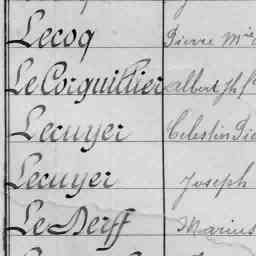 Lecoq Pierre Mie
Le Corguillier Albert Jh
Lecuyer Celestin Pie
Lecuyer Joseph
Le Derff Marius